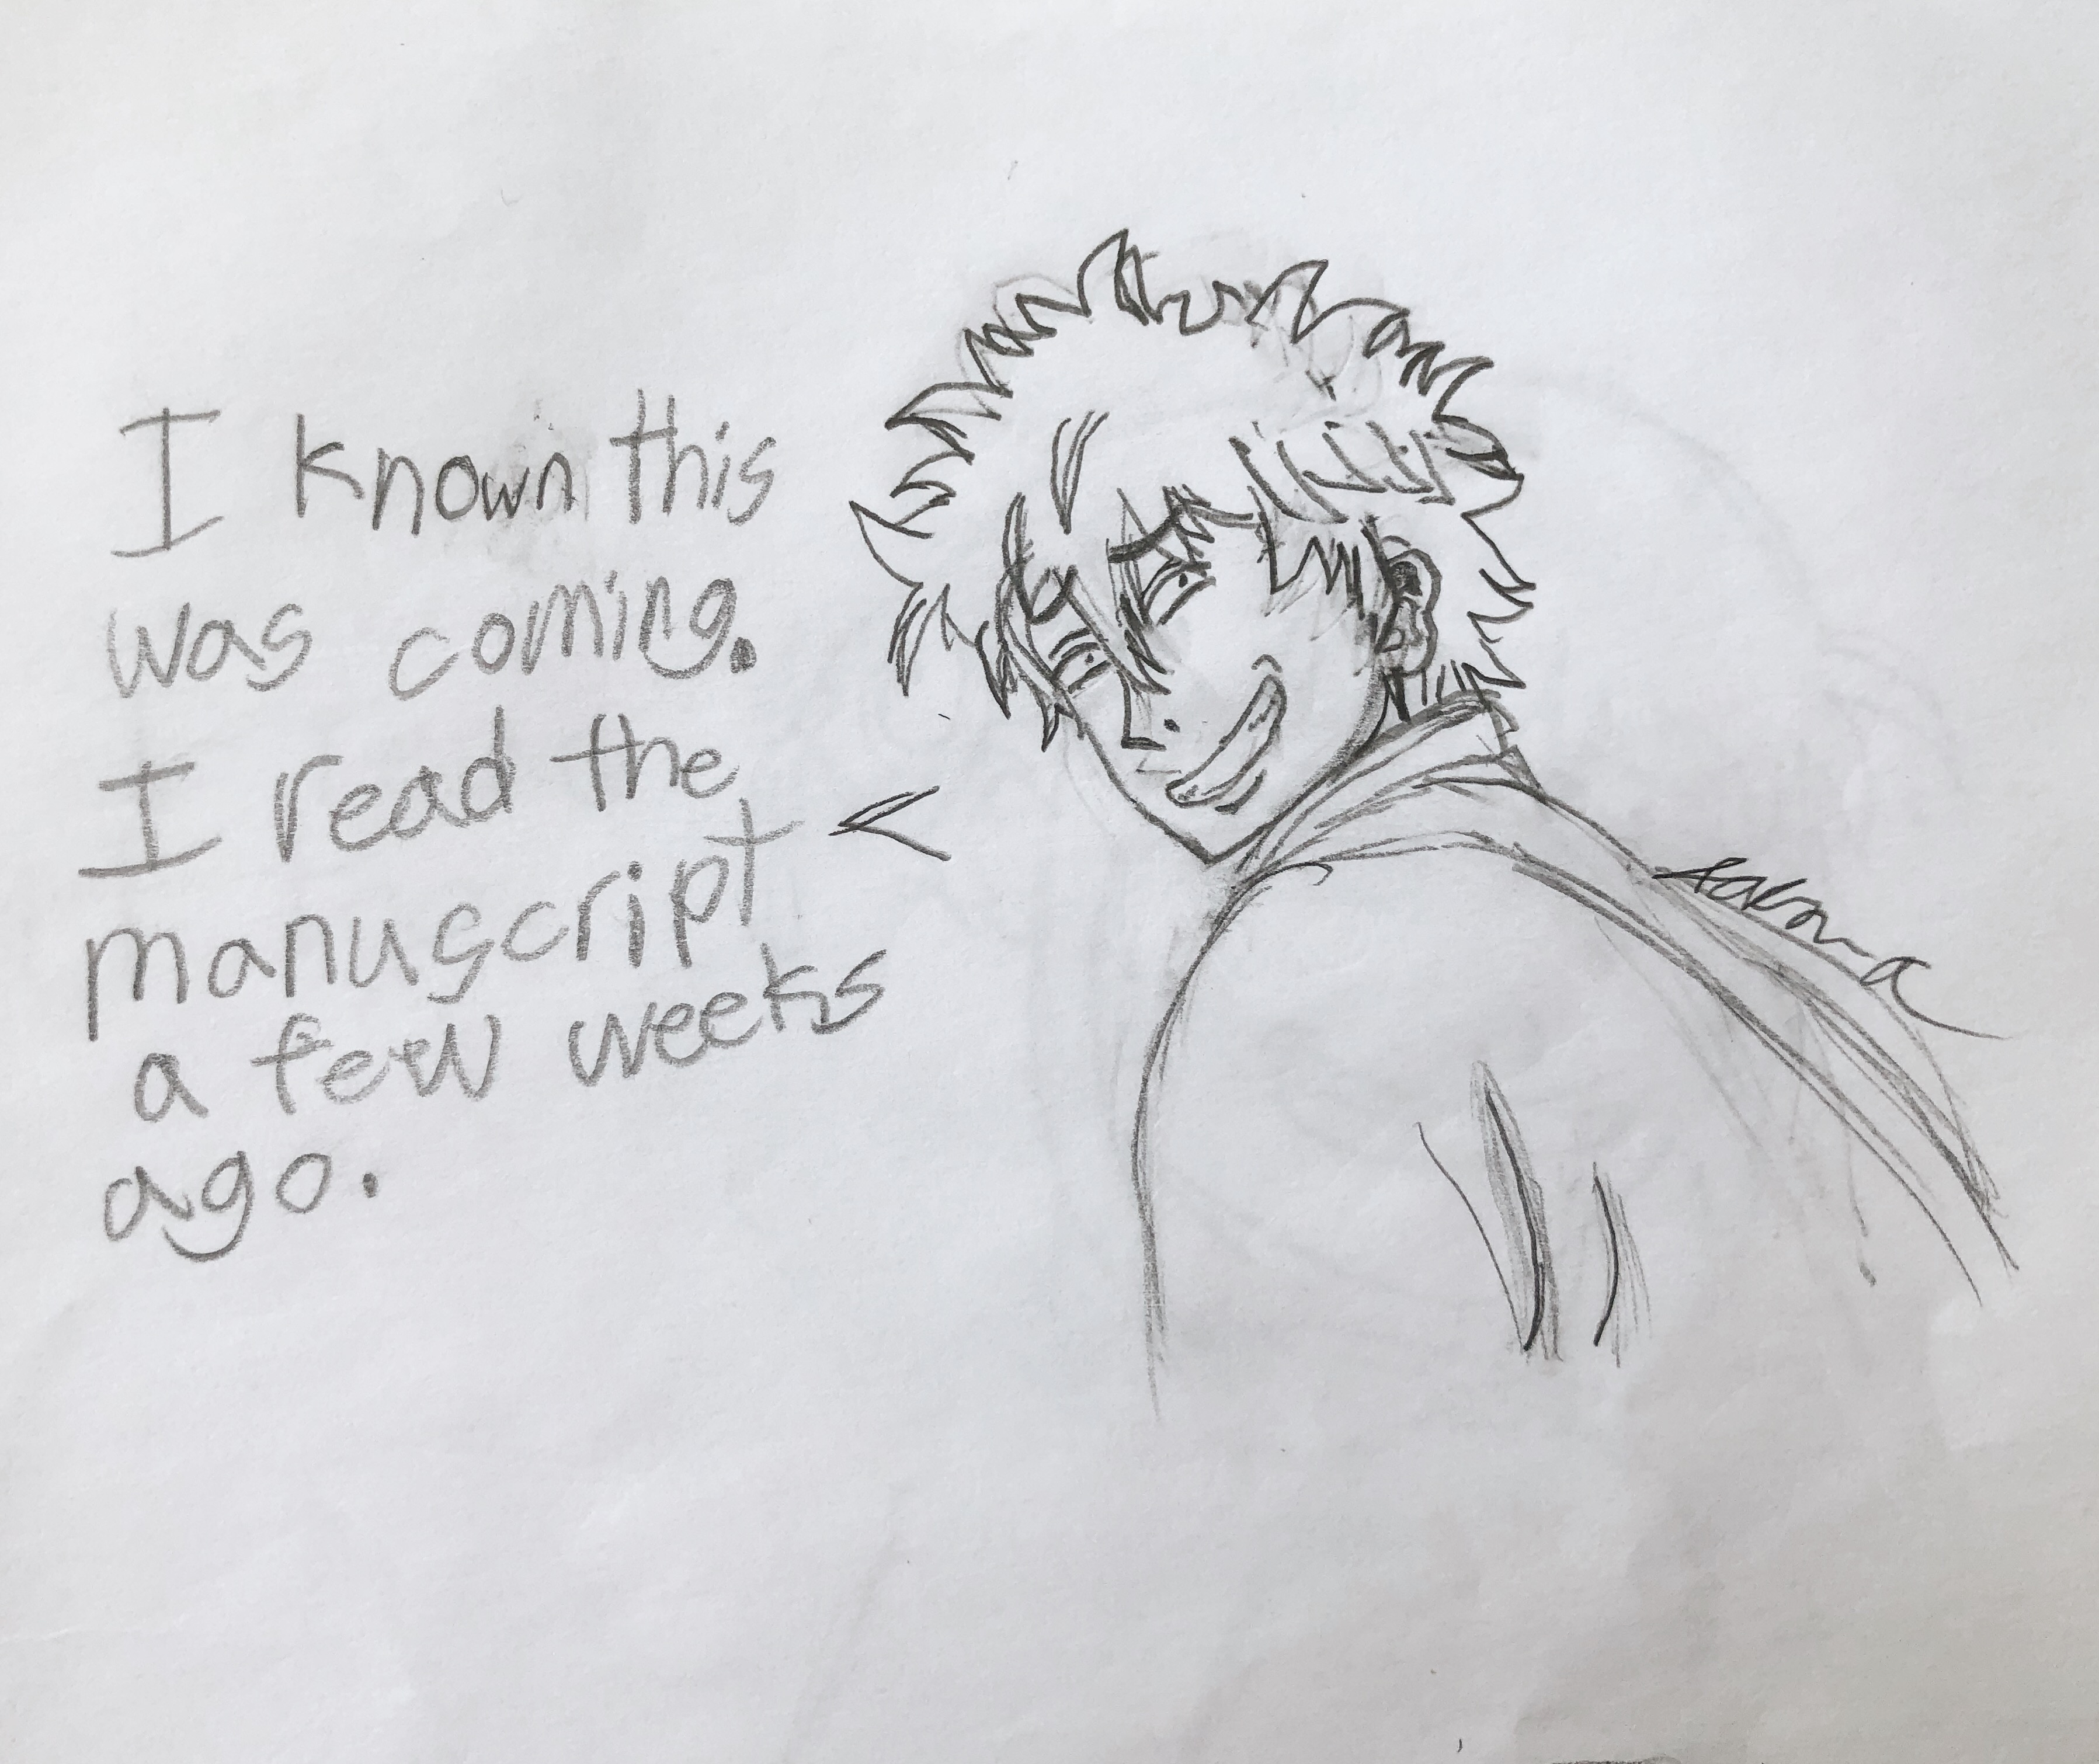 I known this
was coming.
I read the
manuscript
a few weeks
ago.